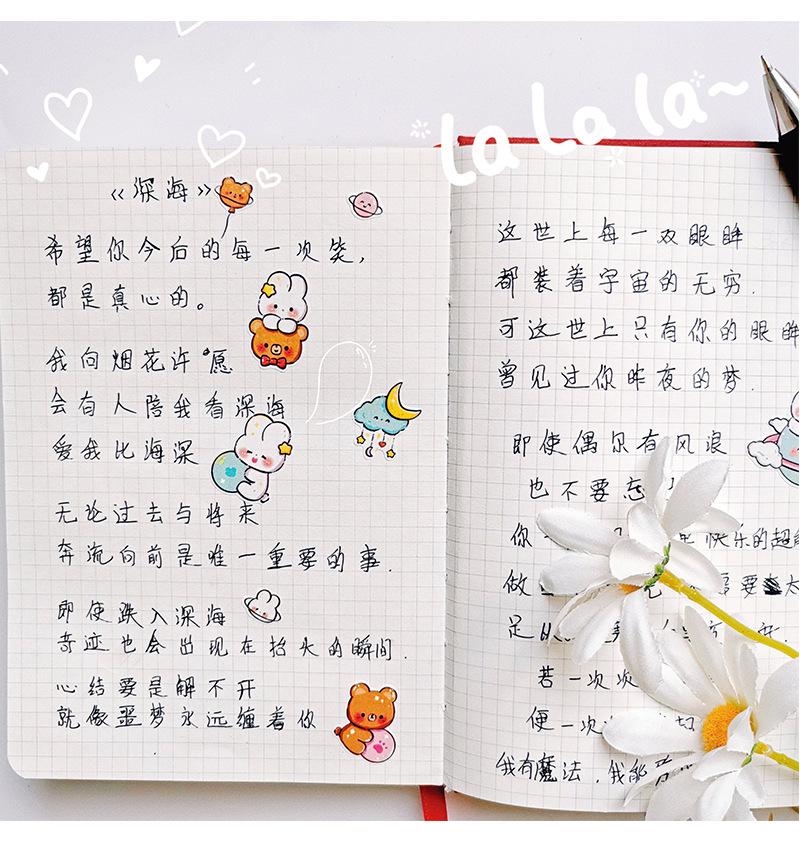 la la la~
《深海》
希望你今后的每一次笑,
都是真心的。
我向烟花许愿
会有人陪我看深海
爱我比海深
无论过去与将来
奔流向前是唯一重要的事.
即使跌入深海
奇迹也会出现在抬头的瞬间.
心结要是解不开
就像噩梦永远缠着你
这世上每一双眼眸
都装着宇宙的无穷.
可这世上只有你的眼眸
曾见过你昨夜的梦.
即使偶尔有风浪
也不要忘
你 快乐的超能
做 需要 太
足
若一次次
便一次
我有魔法,我能